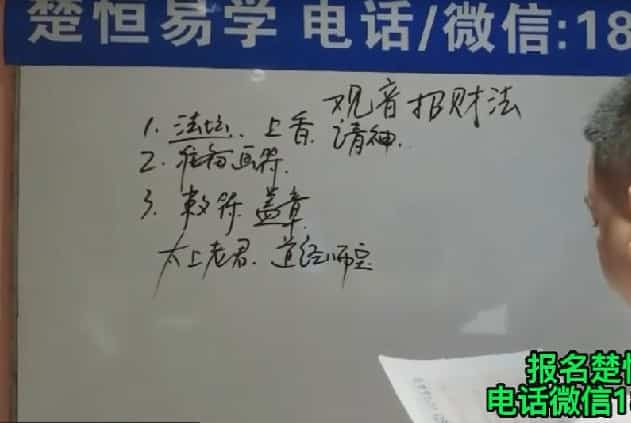 楚恒易学 电话/微信:18
观音招财法
1. 法坛. 上香 请神.
2. 画符.
3. 敕符. 盖章
太上老君. 道经师宝
报名楚恒
电话微信18